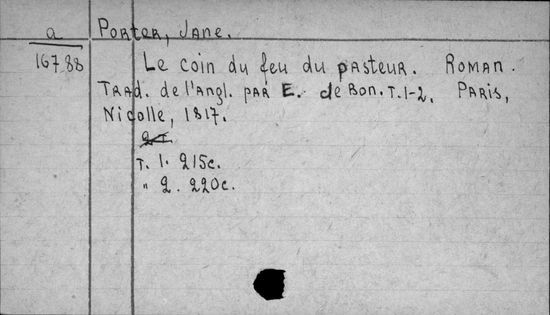 a Porter, Jane.
16788 Le coin du feu du pasteur. Roman.
Trad. de l'angl. par E. de Bon. T. 1-2. Paris,
Nicolle, 1817.
2 т.
т. 1. 215c.
" 2. 220c.